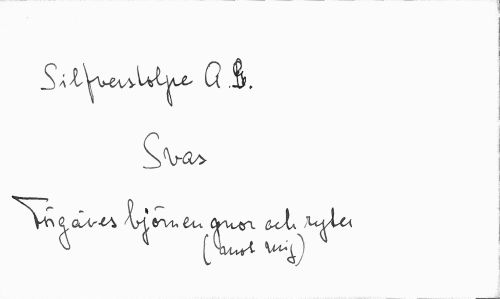 Silfverstolpe A. G.
Svar
Förgäves björnen gnor och ryter
(mot mig)